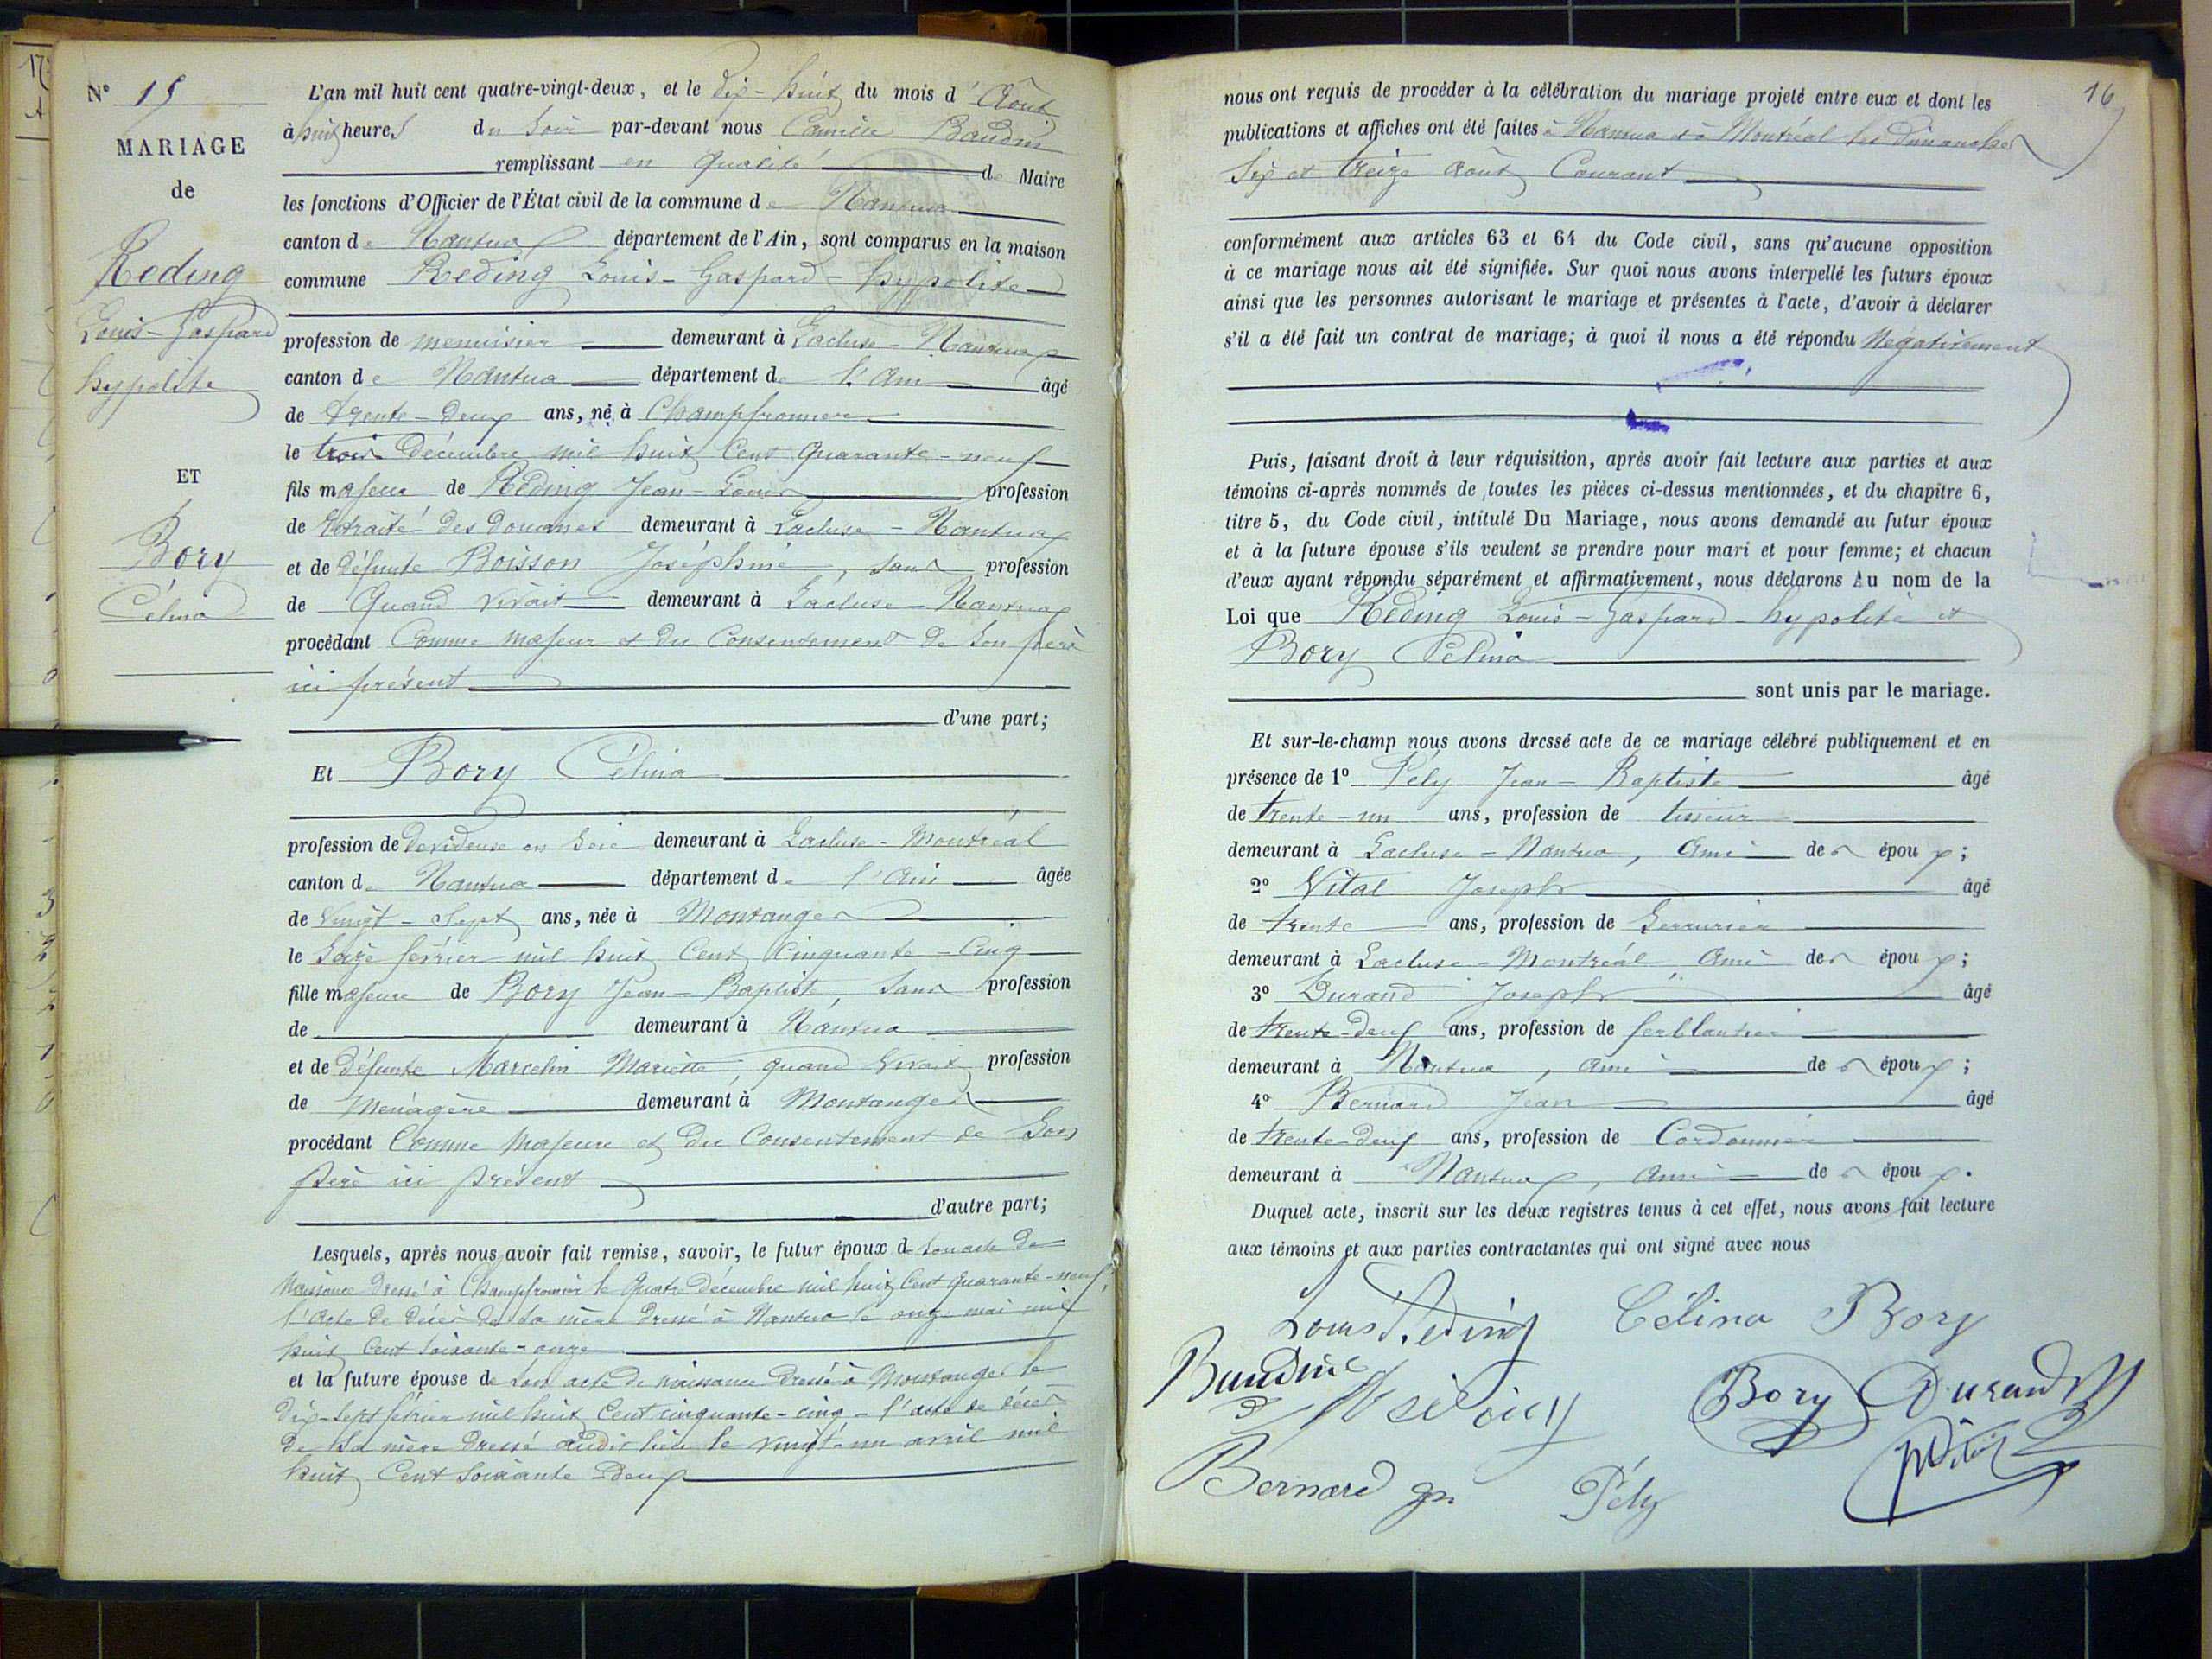 N° 15
MARIAGE
de
Reding
Louis-Gaspard
hypolite
ET
Bory
Célina
L'an mil huit cent quatre-vingt-deux, et le dix-huit du mois d'Août
à huit heures du soir par-devant nous Camille Baudin
remplissant en qualité de Maire
les fonctions d'Officier de l'État civil de la commune de Nantua
canton de Nantua département de l'Ain, sont comparus en la maison
commune Reding Louis-Gaspard-hypolite
profession de menuisier demeurant à Lacluse-Nantua
canton de Nantua département de l'Ain âgé
de trente-deux ans, né à Champfromier
le trois décembre mil huit cent quarante-neuf
fils majeur de Réding Jean-Louis profession
de retraité des douanes demeurant à Lacluse-Nantua
et de défunte Boisson Joséphine, sans profession
de Quand vivait demeurant à Lacluse-Nantua
procédant Comme majeur et du Consentement de son père
ici présent
d'une part;
Et Bory Célina
profession de devideuse en soie demeurant à Lacluse-Montréal
canton de Nantua département de l'Ain âgée
de vingt-sept ans, née à Montanges
le seize février mil huit cent cinquante-cinq
fille majeure de Bory Jean-Baptiste, sans profession
de demeurant à Nantua
et de défunte Marcelin Mariette, quand vivait profession
de ménagère demeurant à Montanges
procédant Comme majeure et du Consentement de son
père ici présent
d'autre part;
Lesquels, après nous avoir fait remise, savoir, le futur époux de son acte de
naissance dressé à Champfromier le quatre décembre mil huit cent quarante-neuf,
l'acte de décès de sa mère dressé à Nantua le onze mai mil
huit cent soixante-onze
et la future épouse de son acte de naissance dressé à Montanges le
dix-sept février mil huit cent cinquante-cinq - l'acte de décès
de sa mère dressé audit lieu le vingt-un avril mil
huit cent soixante deux
16
nous ont requis de procéder à la célébration du mariage projeté entre eux et dont les
publications et affiches ont été faites à Nantua et à Montréal les dimanches
six et treize août Courant
conformément aux articles 63 et 64 du Code civil, sans qu'aucune opposition
à ce mariage nous ait été signifiée. Sur quoi nous avons interpellé les futurs époux
ainsi que les personnes autorisant le mariage et présentes à l'acte, d'avoir à déclarer
s'il a été fait un contrat de mariage; à quoi il nous a été répondu Négativement
Puis, faisant droit à leur réquisition, après avoir fait lecture aux parties et aux
témoins ci-après nommés de toutes les pièces ci-dessus mentionnées, et du chapitre 6,
titre 5, du Code civil, intitulé Du Mariage, nous avons demandé au futur époux
et à la future épouse s'ils veulent se prendre pour mari et pour femme; et chacun
d'eux ayant répondu séparément et affirmativement, nous déclarons Au nom de la
Loi que Réding Louis-Gaspard-hypolite et
Bory Célina
sont unis par le mariage.
Et sur-le-champ nous avons dressé acte de ce mariage célébré publiquement et en
présence de 1° Pély Jean-Baptiste âgé
de trente-un ans, profession de tisseur
demeurant à Lacluse-Nantua, Ami des époux;
2° Vital Joseph âgé
de trente ans, profession de serrurier
demeurant à Lacluse-Montréal Ami des époux;
3° Durand Joseph âgé
de trente-deux ans, profession de ferblantier
demeurant à Nantua, ami des époux;
4° Bernard Jean âgé
de trente-deux ans, profession de Cordonnier
demeurant à Nantua, ami des époux.
Duquel acte, inscrit sur les deux registres tenus à cet effet, nous avons fait lecture
aux témoins et aux parties contractantes qui ont signé avec nous
Louis Reding Célina Bory
Baudin Bory Durand
Bernard Pély